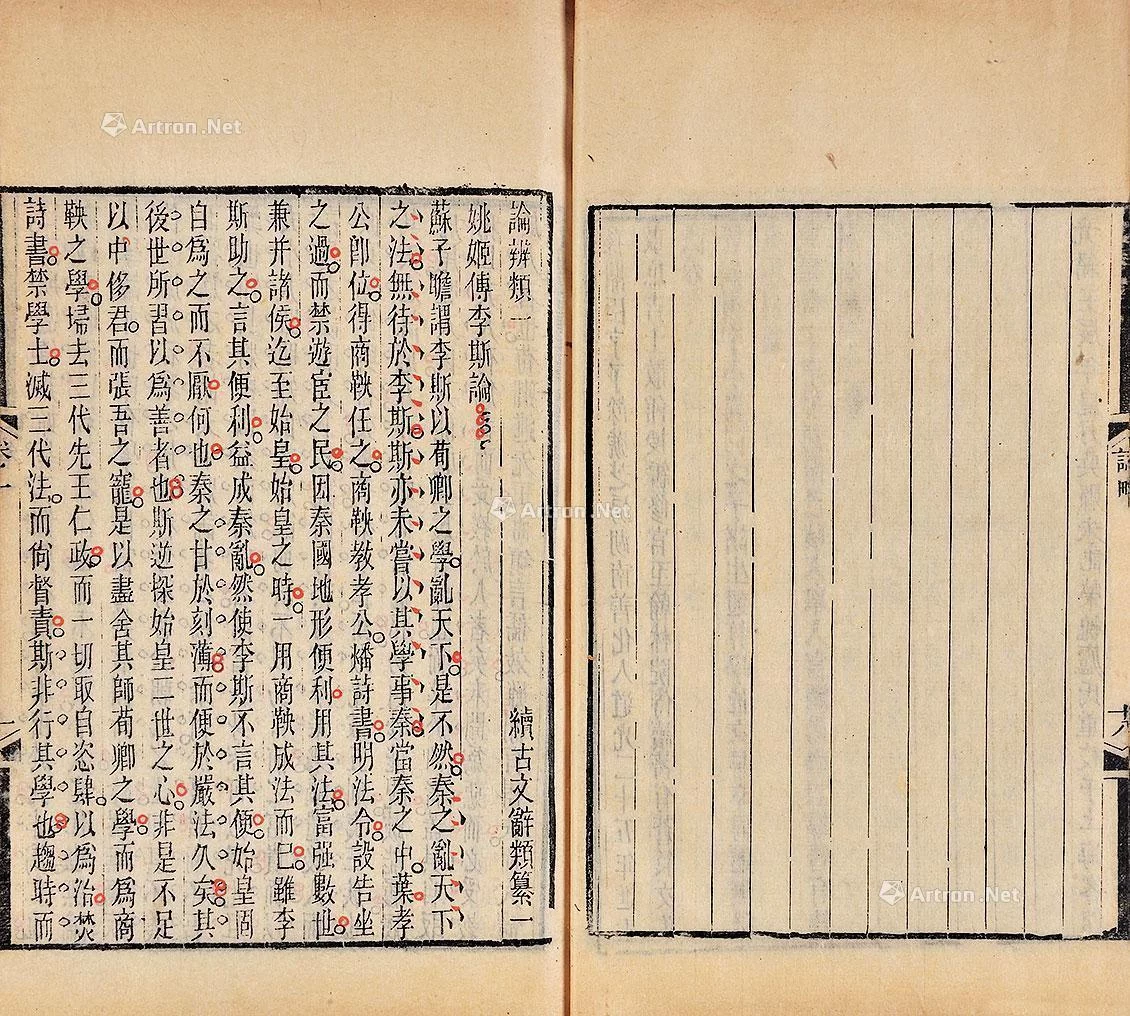 論辨類一 續古文辭類纂一
姚姬傳李斯論
蘇子瞻謂李斯以荀卿之學亂天下是不然秦之亂天下
之法無待於李斯斯亦未嘗以其學事秦當秦之中葉孝
公卽位得商鞅任之商鞅教孝公燔詩書明法令設告坐
之過而禁遊宦之民因秦國地形便利用其法富强數世
兼并諸侯迄至始皇始皇之時一用商鞅成法而已雖李
斯助之言其便利益成秦亂然使李斯不言其便始皇固
自爲之而不厭何也秦之甘於刻薄而便於嚴法久矣其
後世所習以爲善者也斯逆探始皇二世之心非是不足
以中侈君而張吾之寵是以盡舍其師荀卿之學而爲商
鞅之學埽去三代先王仁政而一切取自恣肆以爲治焚
詩書禁學士滅三代法而尙督責斯非行其學也趨時而
卷一
一
略
十八
Artron.Net
Artron.Net
Artron.Net
Artron.Net